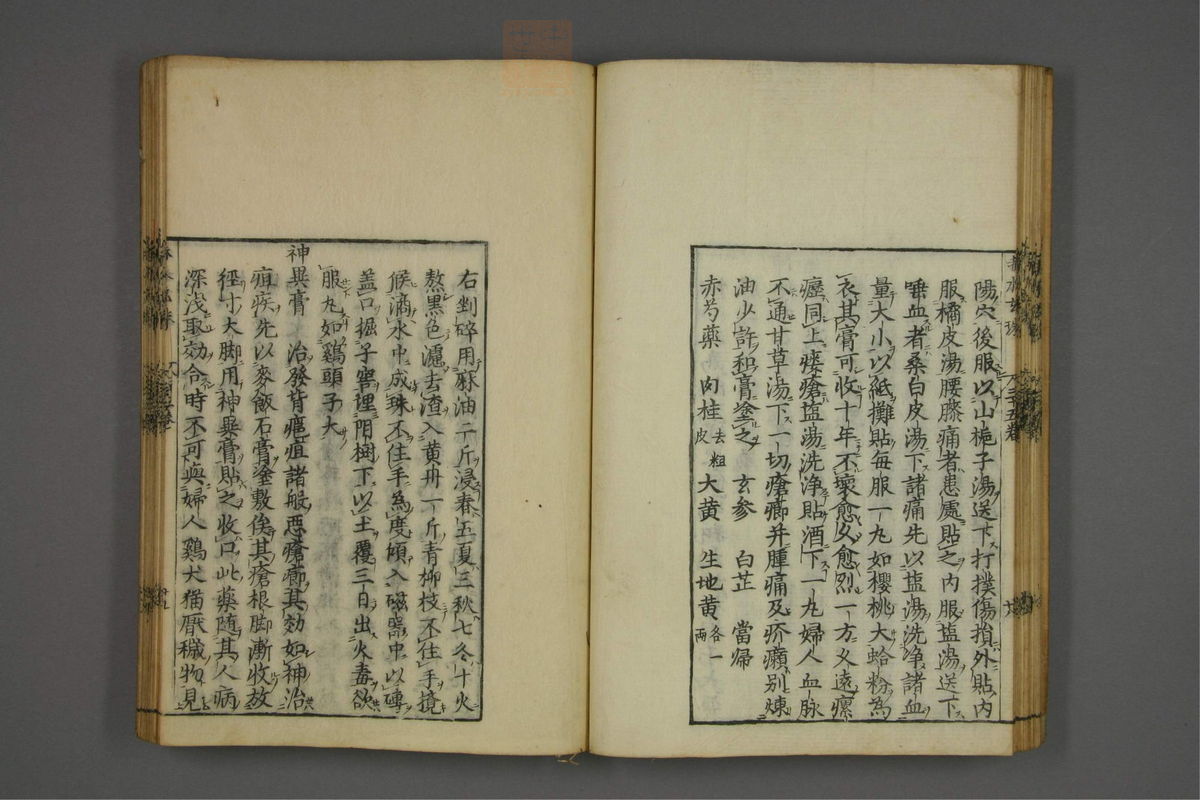 陽穴後服以山梔子湯送下打撲傷損外貼内
服橘皮湯腰膝痛者患處貼之内服塩湯送下
唾血者桑白皮湯下諸痛先以塩湯洗净諸血
量大小以紙攤貼毎服一丸如櫻桃大蛤粉為
衣其膏可收十年不壞愈久愈烈一方又遠瘰
癧同上瘻瘡塩湯洗净貼酒下一丸婦人血脉
不通甘草湯下一切瘡癤并腫痛及疥癩别煉
油少許和膏塗之 玄参 白芷 當帰
赤芍藥 肉桂去粗皮 大黄 生地黄各一兩
右剉碎用麻油二斤浸春五夏三秋七冬十火
熬黒色濾去渣入黄丹一斤青柳枝不住手攪
候滴水中成珠不住手為度傾入磁器中以磚
盖口掘子窖埋陰樹下以土覆三日出火毒欲
服丸如鷄頭子大
神異膏 治發背癰疽諸般惡瘡癤其効如神治
疽疾先以麥飯石膏塗敷俟其瘡根脚漸收放
徑寸大脚用神異膏貼之收口此藥随其人病
深浅取効合時不可與婦人鷄犬猫厭穢物見